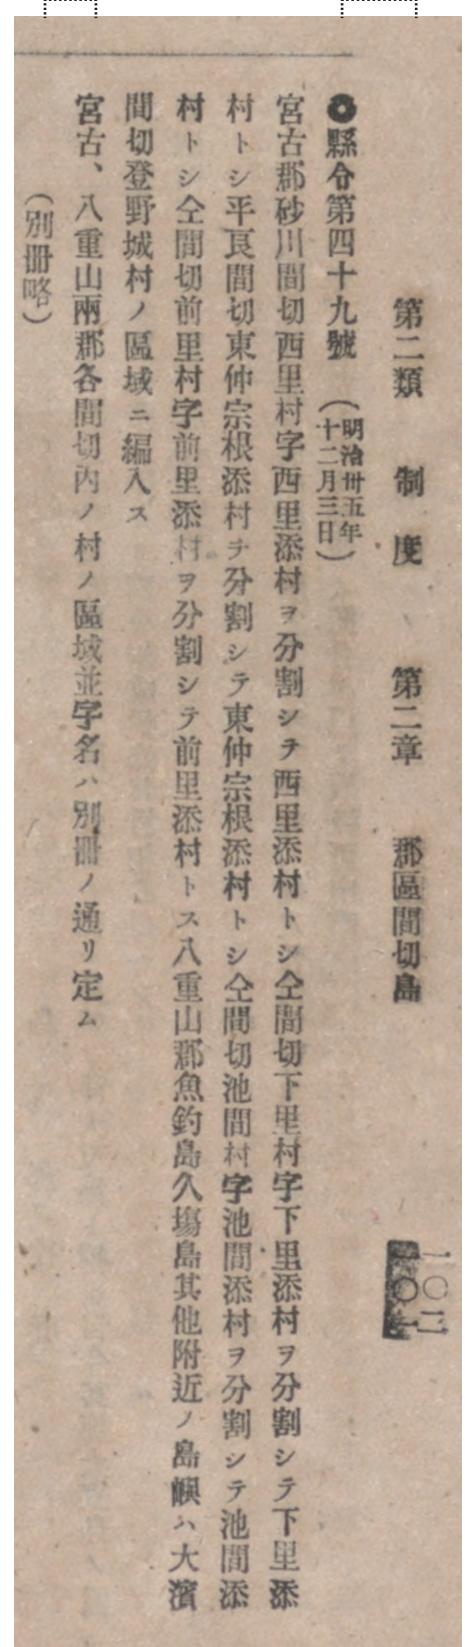 第二類　制度　第二章　郡區間切島
一〇二
●縣令第四十九號（明治卅五年十二月三日）
宮古郡砂川間切西里村字西里添村ヲ分割シテ西里添村トシ仝間切下里村字下里添村ヲ分割シテ下里添
村トシ平良間切東仲宗根添村ヲ分割シテ東仲宗根添村トシ仝間切池間村字池間添村ヲ分割シテ池間添
村トシ仝間切前里村字前里添村ヲ分割シテ前里添村トス八重山郡魚釣島久塲島其他附近ノ島嶼ハ大濱
間切登野城村ノ區域ニ編入ス
宮古、八重山兩郡各間切內ノ村ノ區域並字名ハ別冊ノ通リ定ム
（別冊略）